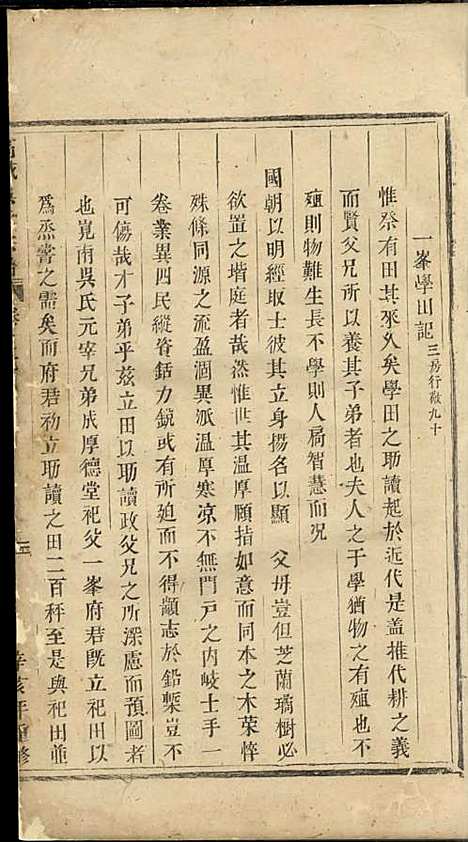 一峯學田記 三房行敬九十
惟祭有田其來久矣學田之助讀起於近代是盖推代耕之義
而賢父兄所以養其子弟者也夫人之于學猶物之有殖也不
殖則物難生長不學則人扃智慧而况
國朝以明經取士彼其立身揚名以顯 父母豈但芝蘭璚樹必
欲置之堦庭者哉然惟世其溫厚頤指如意而同本之木荣悴
殊條同源之流盈涸異派温厚寒凉不無門戸之内岐士手一
卷業異四民縱資銛力鏡或有所迫而不得顓志於鉛槧豈不
可傷哉才子弟乎兹立田以助讀政父兄之所深慮而預圖者
也嵬南吳氏元宰兄弟成厚德堂祀父一峯府君既立祀田以
爲烝嘗之需矣而府君初立助讀之田二百秤至是與祀田並
辛亥年重修